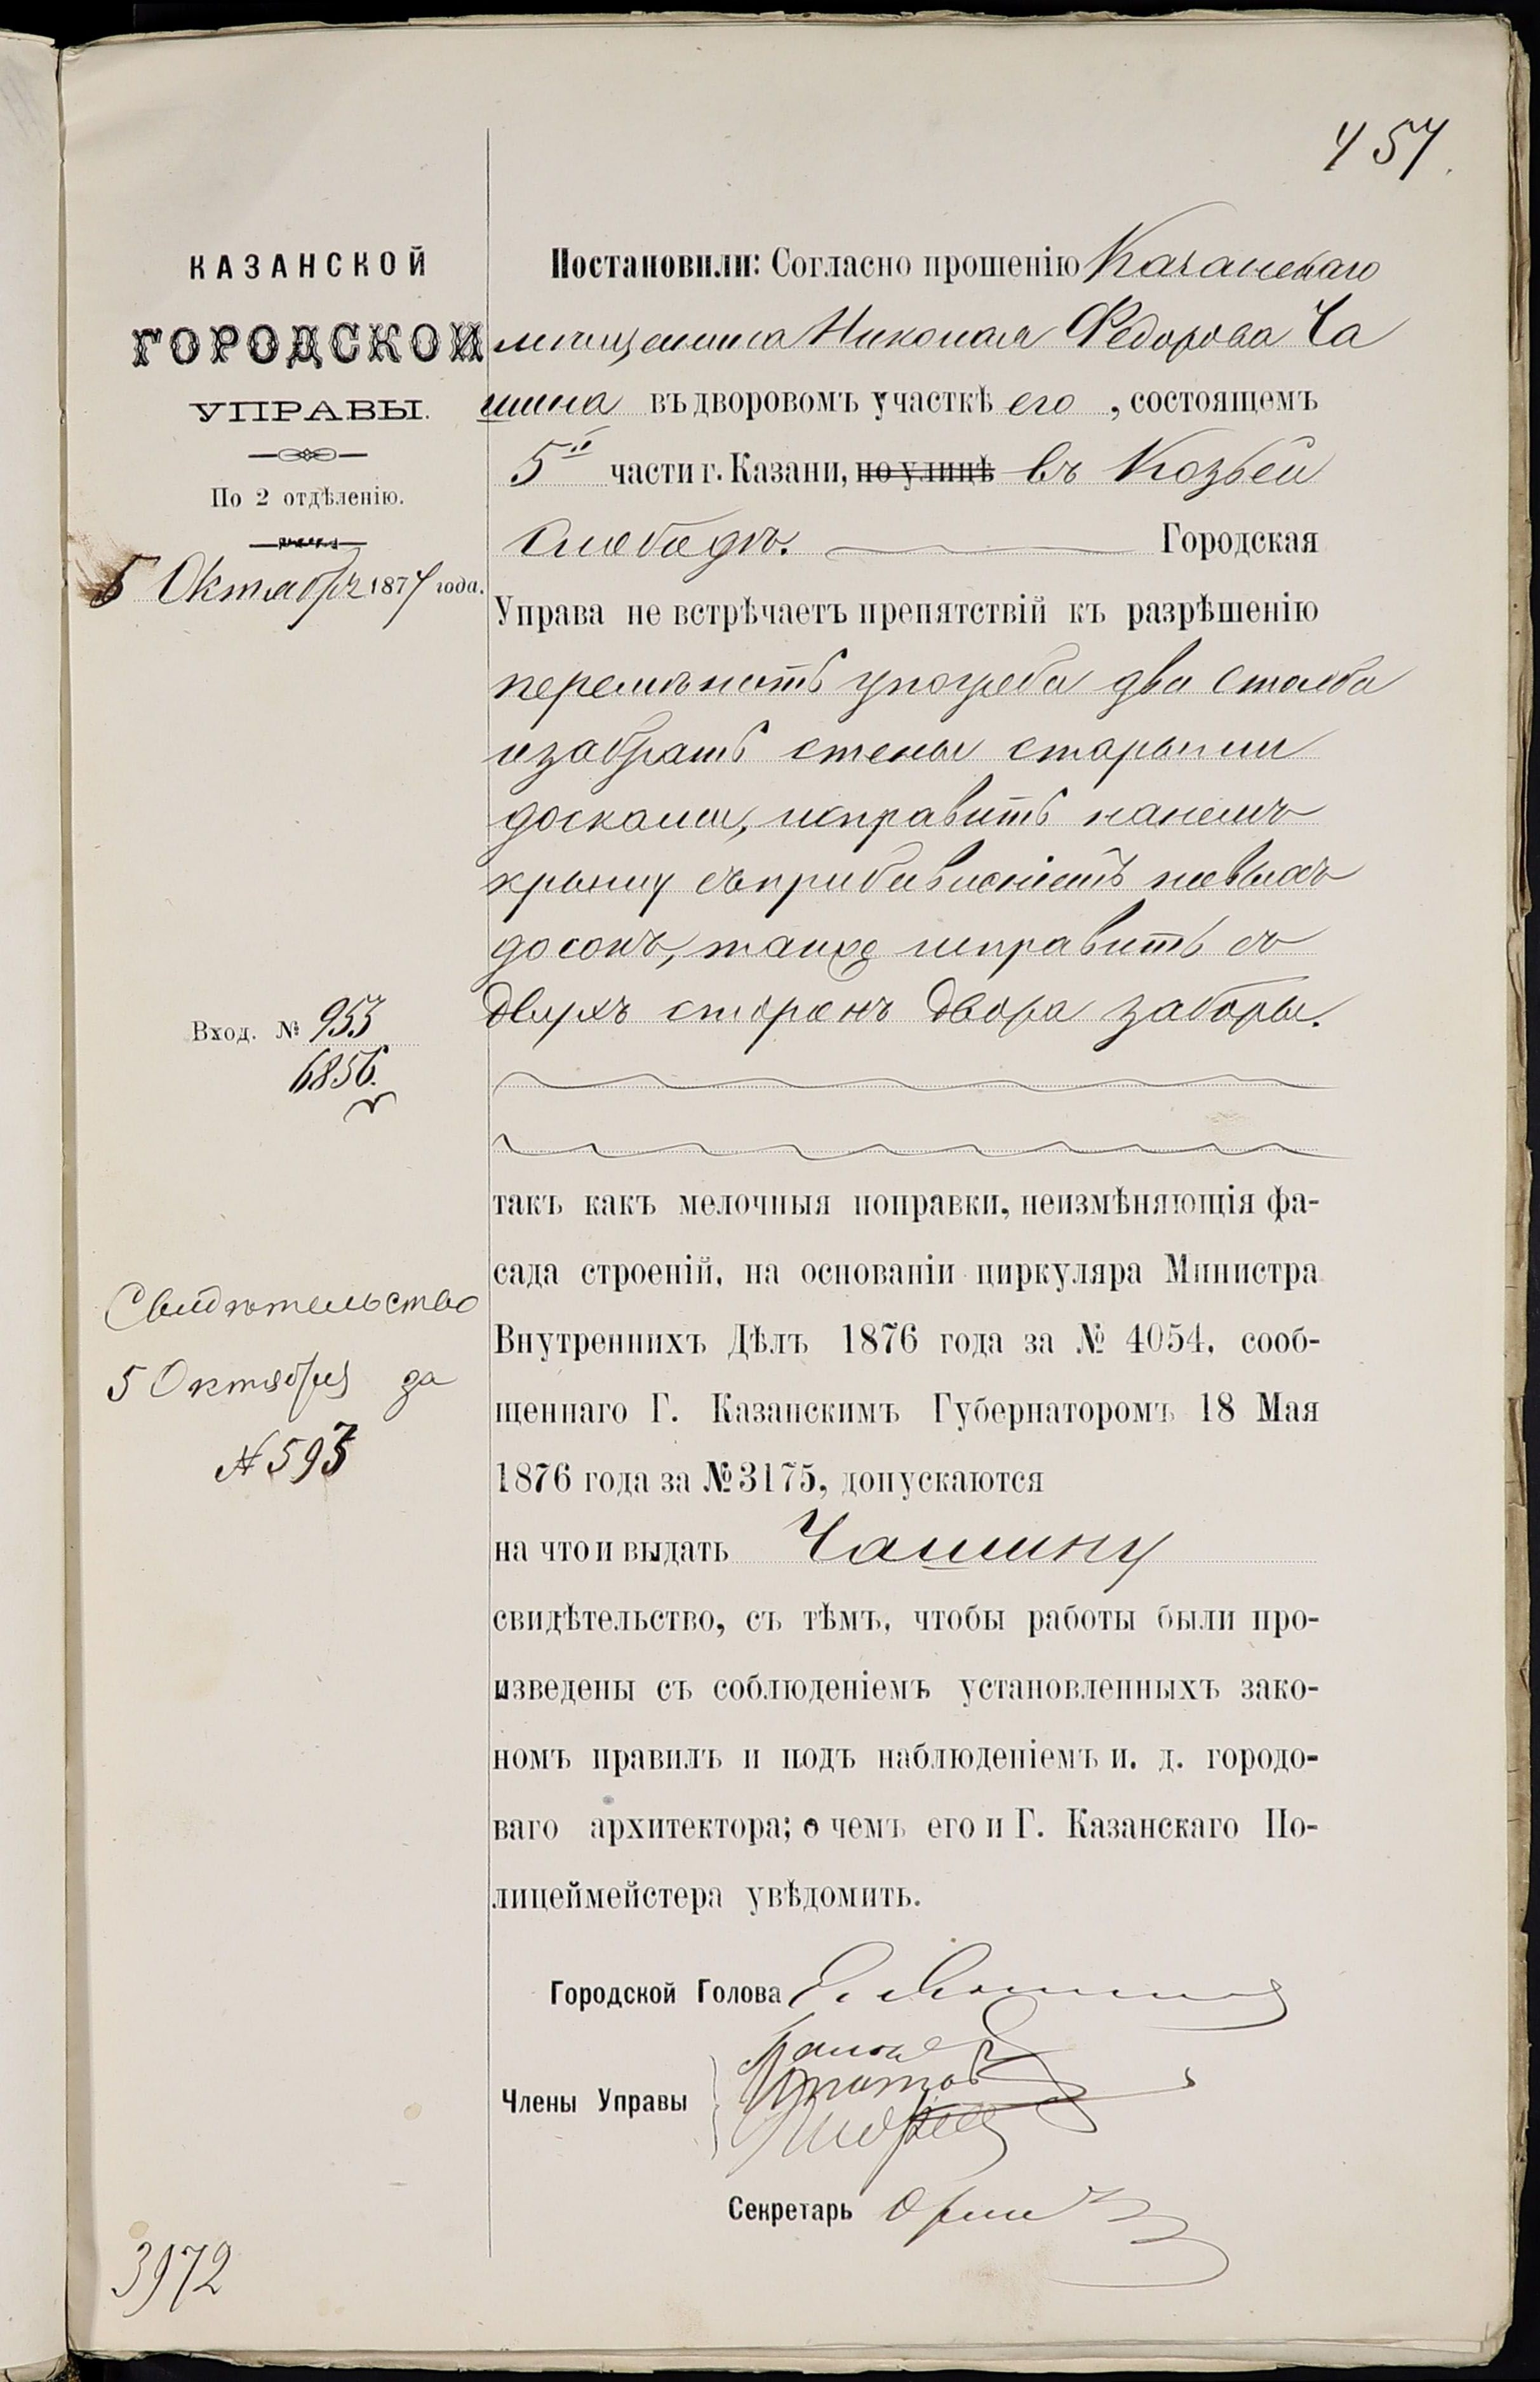 457.
КАЗАНСКОЙ
ГОРОДСКОЙ
УПРАВЫ.
По 2 отдѣленію.
5 Октября 1877 года.
Вход. № 953
6856.
Свидѣтельство
5 Октября за
№ 593
3972
Постановили: Согласно прошенію Казанскаго
мѣщанина Николая Федорова Ча
шина въ дворовомъ участкѣ его , состоящемъ
5й части г. Казани, по улицѣ въ Козьей
слободѣ. Городская
Управа не встрѣчаетъ препятствій къ разрѣшенію
перемѣнить упогреба два столба
изабрать стены старыми
досками, исправить нанемъ
крышу съприбавленіемъ новыхъ
досокъ, также исправить съ
двухъ сторонъ двора заборы.
такъ какъ мелочныя поправки, неизмѣняющія фа-
сада строеній, на основаніи циркуляра Министра
Внутреннихъ Дѣлъ 1876 года за № 4054, сооб-
щеннаго Г. Казанскимъ Губернаторомъ 18 Мая
1876 года за № 3175, допускаются
на что и выдать Чашину
свидѣтельство, съ тѣмъ, чтобы работы были про-
изведены съ соблюденіемъ установленныхъ зако-
номъ правилъ и подъ наблюденіемъ и. д. городо-
ваго архитектора; о чемъ его и Г. Казанскаго По-
лицеймейстера увѣдомить.
Городской Голова
Члены Управы
Секретарь